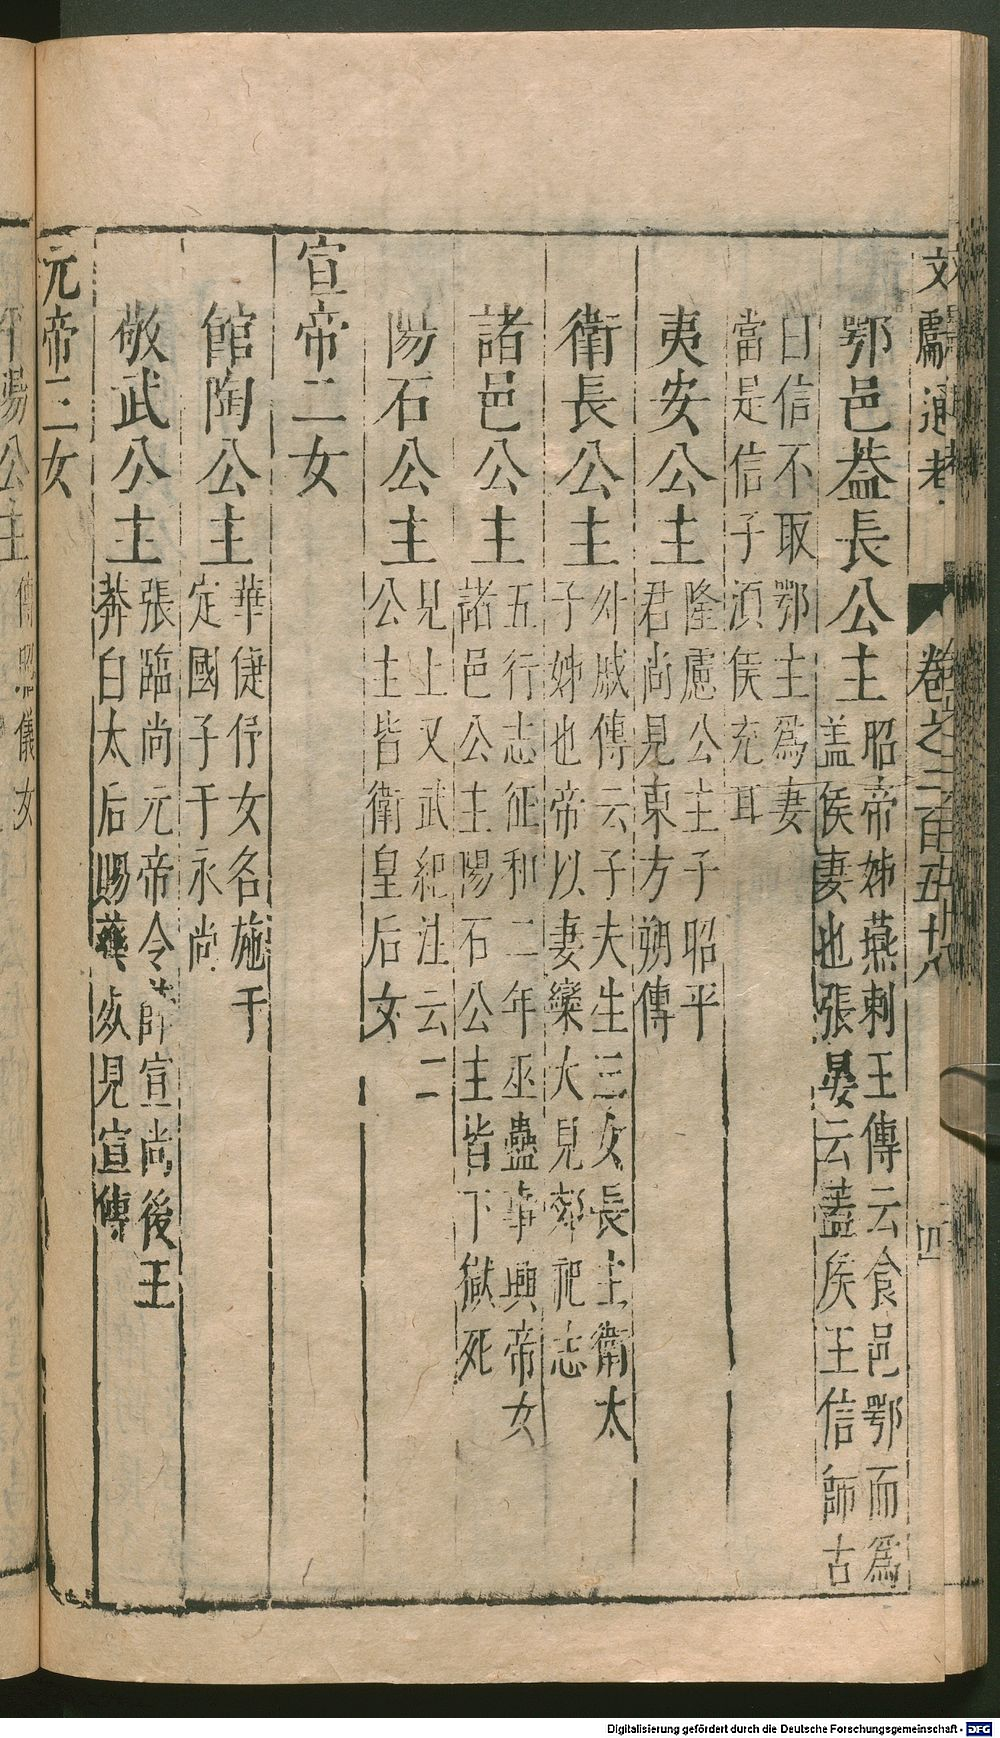 文獻通考 卷之二百五十八 四
鄂邑葢長公主 昭帝姊燕剌王傳云食邑鄂而爲
蓋侯妻也張晏云蓋侯王信師古
曰信不取鄂主爲妻
當是信子湏侯充耳
夷安公主 隆慮公主子昭平
君尚見東方朔傳
衛長公主 外戚傳云子夫生三女長主衛太
子姊也帝以妻欒大見郊祀志
諸邑公主 五行志征和二年巫蠱事興帝女
諸邑公主陽石公主皆下獄死
陽石公主 見上又武紀注云二
公主皆衛皇后女
宣帝二女
館陶公主 華倢伃女名施于
定國子于永尚
敬武公主 張臨尚元帝令薛宣尚後王
莽白太后賜藥 見宣傳
元帝三女
平陽公主 傅昭儀女
Digitalisierung gefördert durch die Deutsche Forschungsgemeinschaft - DFG